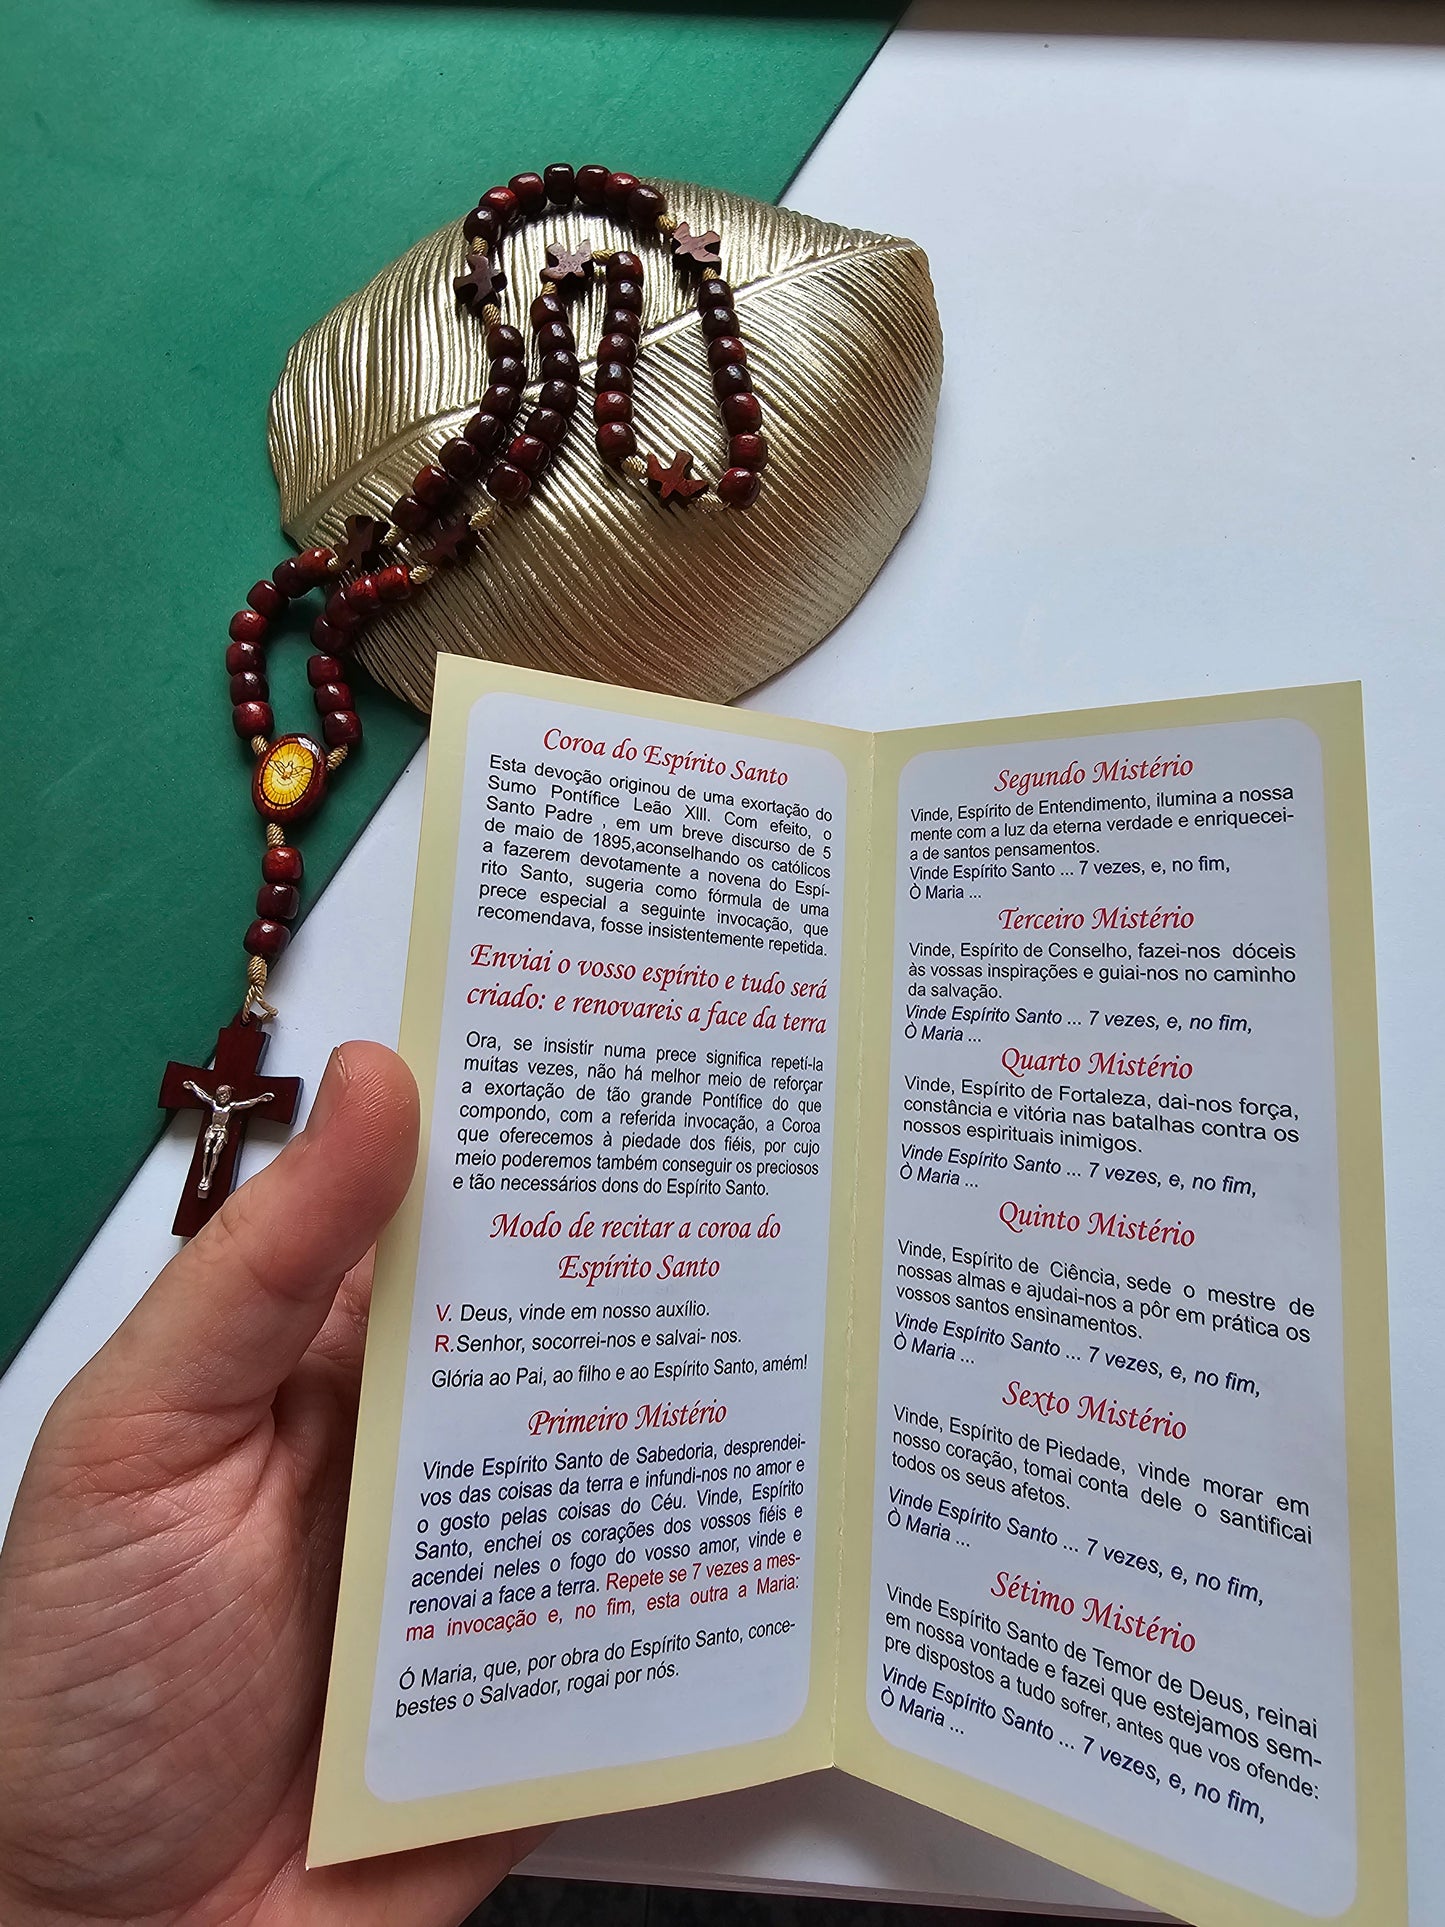 Coroa do Espírito Santo
Esta devoção originou de uma exortação do
Sumo Pontífice Leão XIII. Com efeito, o
Santo Padre , em um breve discurso de 5
de maio de 1895,aconselhando os católicos
a fazerem devotamente a novena do Espí-
rito Santo, sugeria como fórmula de uma
prece especial a seguinte invocação, que
recomendava, fosse insistentemente repetida.
Enviai o vosso espírito e tudo será
criado: e renovareis a face da terra
Ora, se insistir numa prece significa repetí-la
muitas vezes, não há melhor meio de reforçar
a exortação de tão grande Pontífice do que
compondo, com a referida invocação, a Coroa
que oferecemos à piedade dos fiéis, por cujo
meio poderemos também conseguir os preciosos
e tão necessários dons do Espírito Santo.
Modo de recitar a coroa do
Espírito Santo
V. Deus, vinde em nosso auxílio.
R.Senhor, socorrei-nos e salvai- nos.
Glória ao Pai, ao filho e ao Espírito Santo, amém!
Primeiro Mistério
Vinde Espírito Santo de Sabedoria, desprendei-
vos das coisas da terra e infundi-nos no amor e
o gosto pelas coisas do Céu. Vinde, Espírito
Santo, enchei os corações dos vossos fiéis e
acendei neles o fogo do vosso amor, vinde e
renovai a face a terra. Repete se 7 vezes a mes-
ma invocação e, no fim, esta outra a Maria:
Ó Maria, que, por obra do Espírito Santo, conce-
bestes o Salvador, rogai por nós.
Segundo Mistério
Vinde, Espírito de Entendimento, ilumina a nossa
mente com a luz da eterna verdade e enriquecei-
a de santos pensamentos.
Vinde Espírito Santo ... 7 vezes, e, no fim,
Ò Maria ...
Terceiro Mistério
Vinde, Espírito de Conselho, fazei-nos dóceis
às vossas inspirações e guiai-nos no caminho
da salvação.
Vinde Espírito Santo ... 7 vezes, e, no fim,
Ò Maria ...
Quarto Mistério
Vinde, Espírito de Fortaleza, dai-nos força,
constância e vitória nas batalhas contra os
nossos espirituais inimigos.
Vinde Espírito Santo ... 7 vezes, e, no fim,
Ò Maria ...
Quinto Mistério
Vinde, Espírito de Ciência, sede o mestre de
nossas almas e ajudai-nos a pôr em prática os
vossos santos ensinamentos.
Vinde Espírito Santo ... 7 vezes, e, no fim,
Ò Maria ...
Sexto Mistério
Vinde, Espírito de Piedade, vinde morar em
nosso coração, tomai conta dele o santificai
todos os seus afetos.
Vinde Espírito Santo ... 7 vezes, e, no fim,
Ò Maria ...
Sétimo Mistério
Vinde Espírito Santo de Temor de Deus, reinai
em nossa vontade e fazei que estejamos sem-
pre dispostos a tudo sofrer, antes que vos ofende:
Vinde Espírito Santo ... 7 vezes, e, no fim,
Ò Maria ...